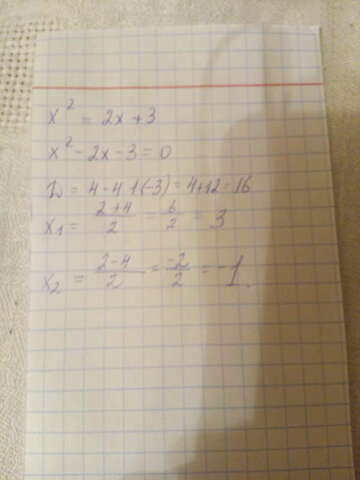 x² = 2x + 3
x² - 2x - 3 = 0
D = 4 - 4·1·(-3) = 4+12 = 16
x₁ = (2+4)/2 = 6/2 = 3
x₂ = (2-4)/2 = -2/2 = -1.